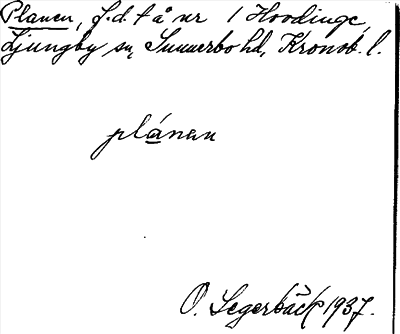 Planen, f.d. t å nr 1 Hoodinge,
Ljungby sn, Sunnerbo hd, Kronob. l.
plánan
O. Segerbäck 1937.